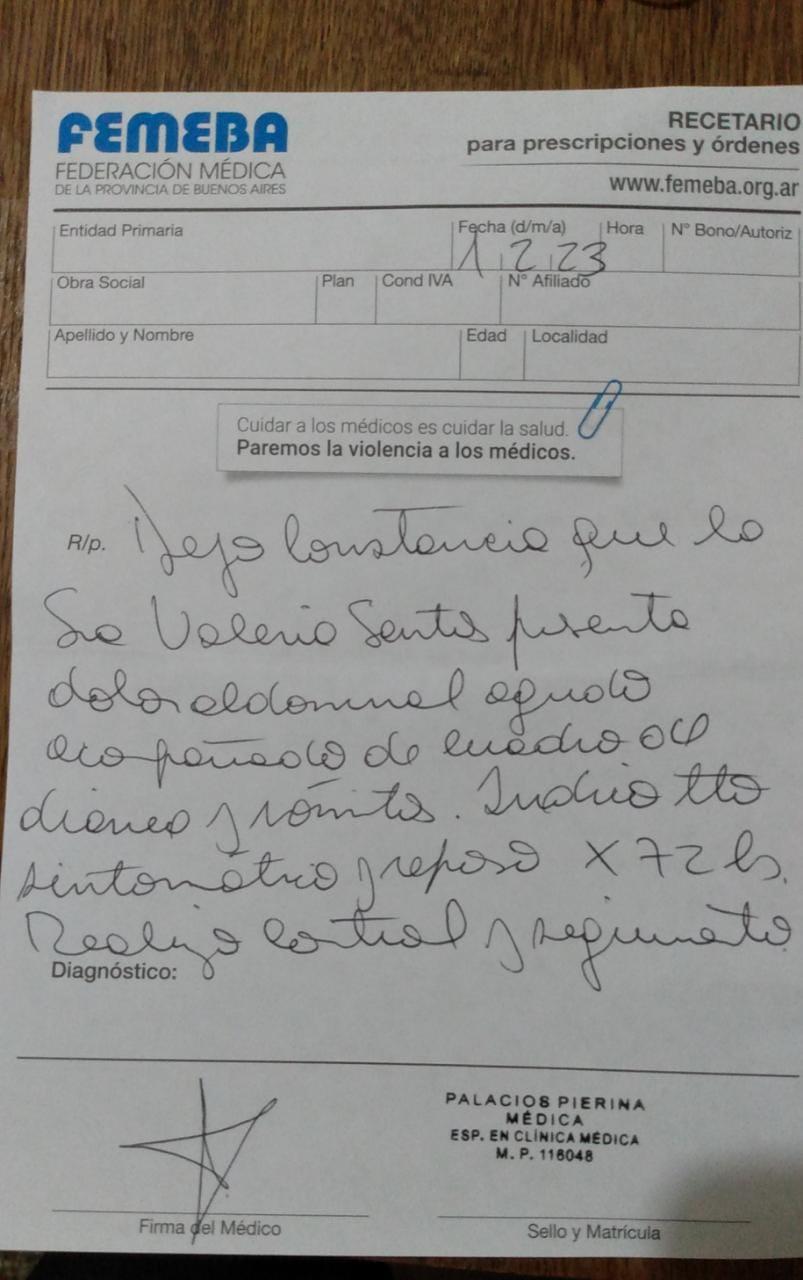 FEMEBA
FEDERACIÓN MÉDICA
DE LA PROVINCIA DE BUENOS AIRES
RECETARIO
para prescripciones y órdenes
www.femeba.org.ar
Entidad Primaria
Fecha (d/m/a)
Hora
N° Bono/Autoriz
1 2 23
Obra Social
Plan
Cond IVA
N° Afiliado
Apellido y Nombre
Edad
Localidad
Cuidar a los médicos es cuidar la salud.
Paremos la violencia a los médicos.
R/p. Dejo Constancia que la
Sra Valeria Santos presenta
dolor abdominal agudo
acompañado de cuadro de
diarrea y vómitos. Indico tto
sintomático y reposo X 72 hs.
Realizo control y seguimiento.
Diagnóstico:
PALACIOS PIERINA
MÉDICA
ESP. EN CLÍNICA MÉDICA
M. P. 116048
Firma del Médico
Sello y Matrícula